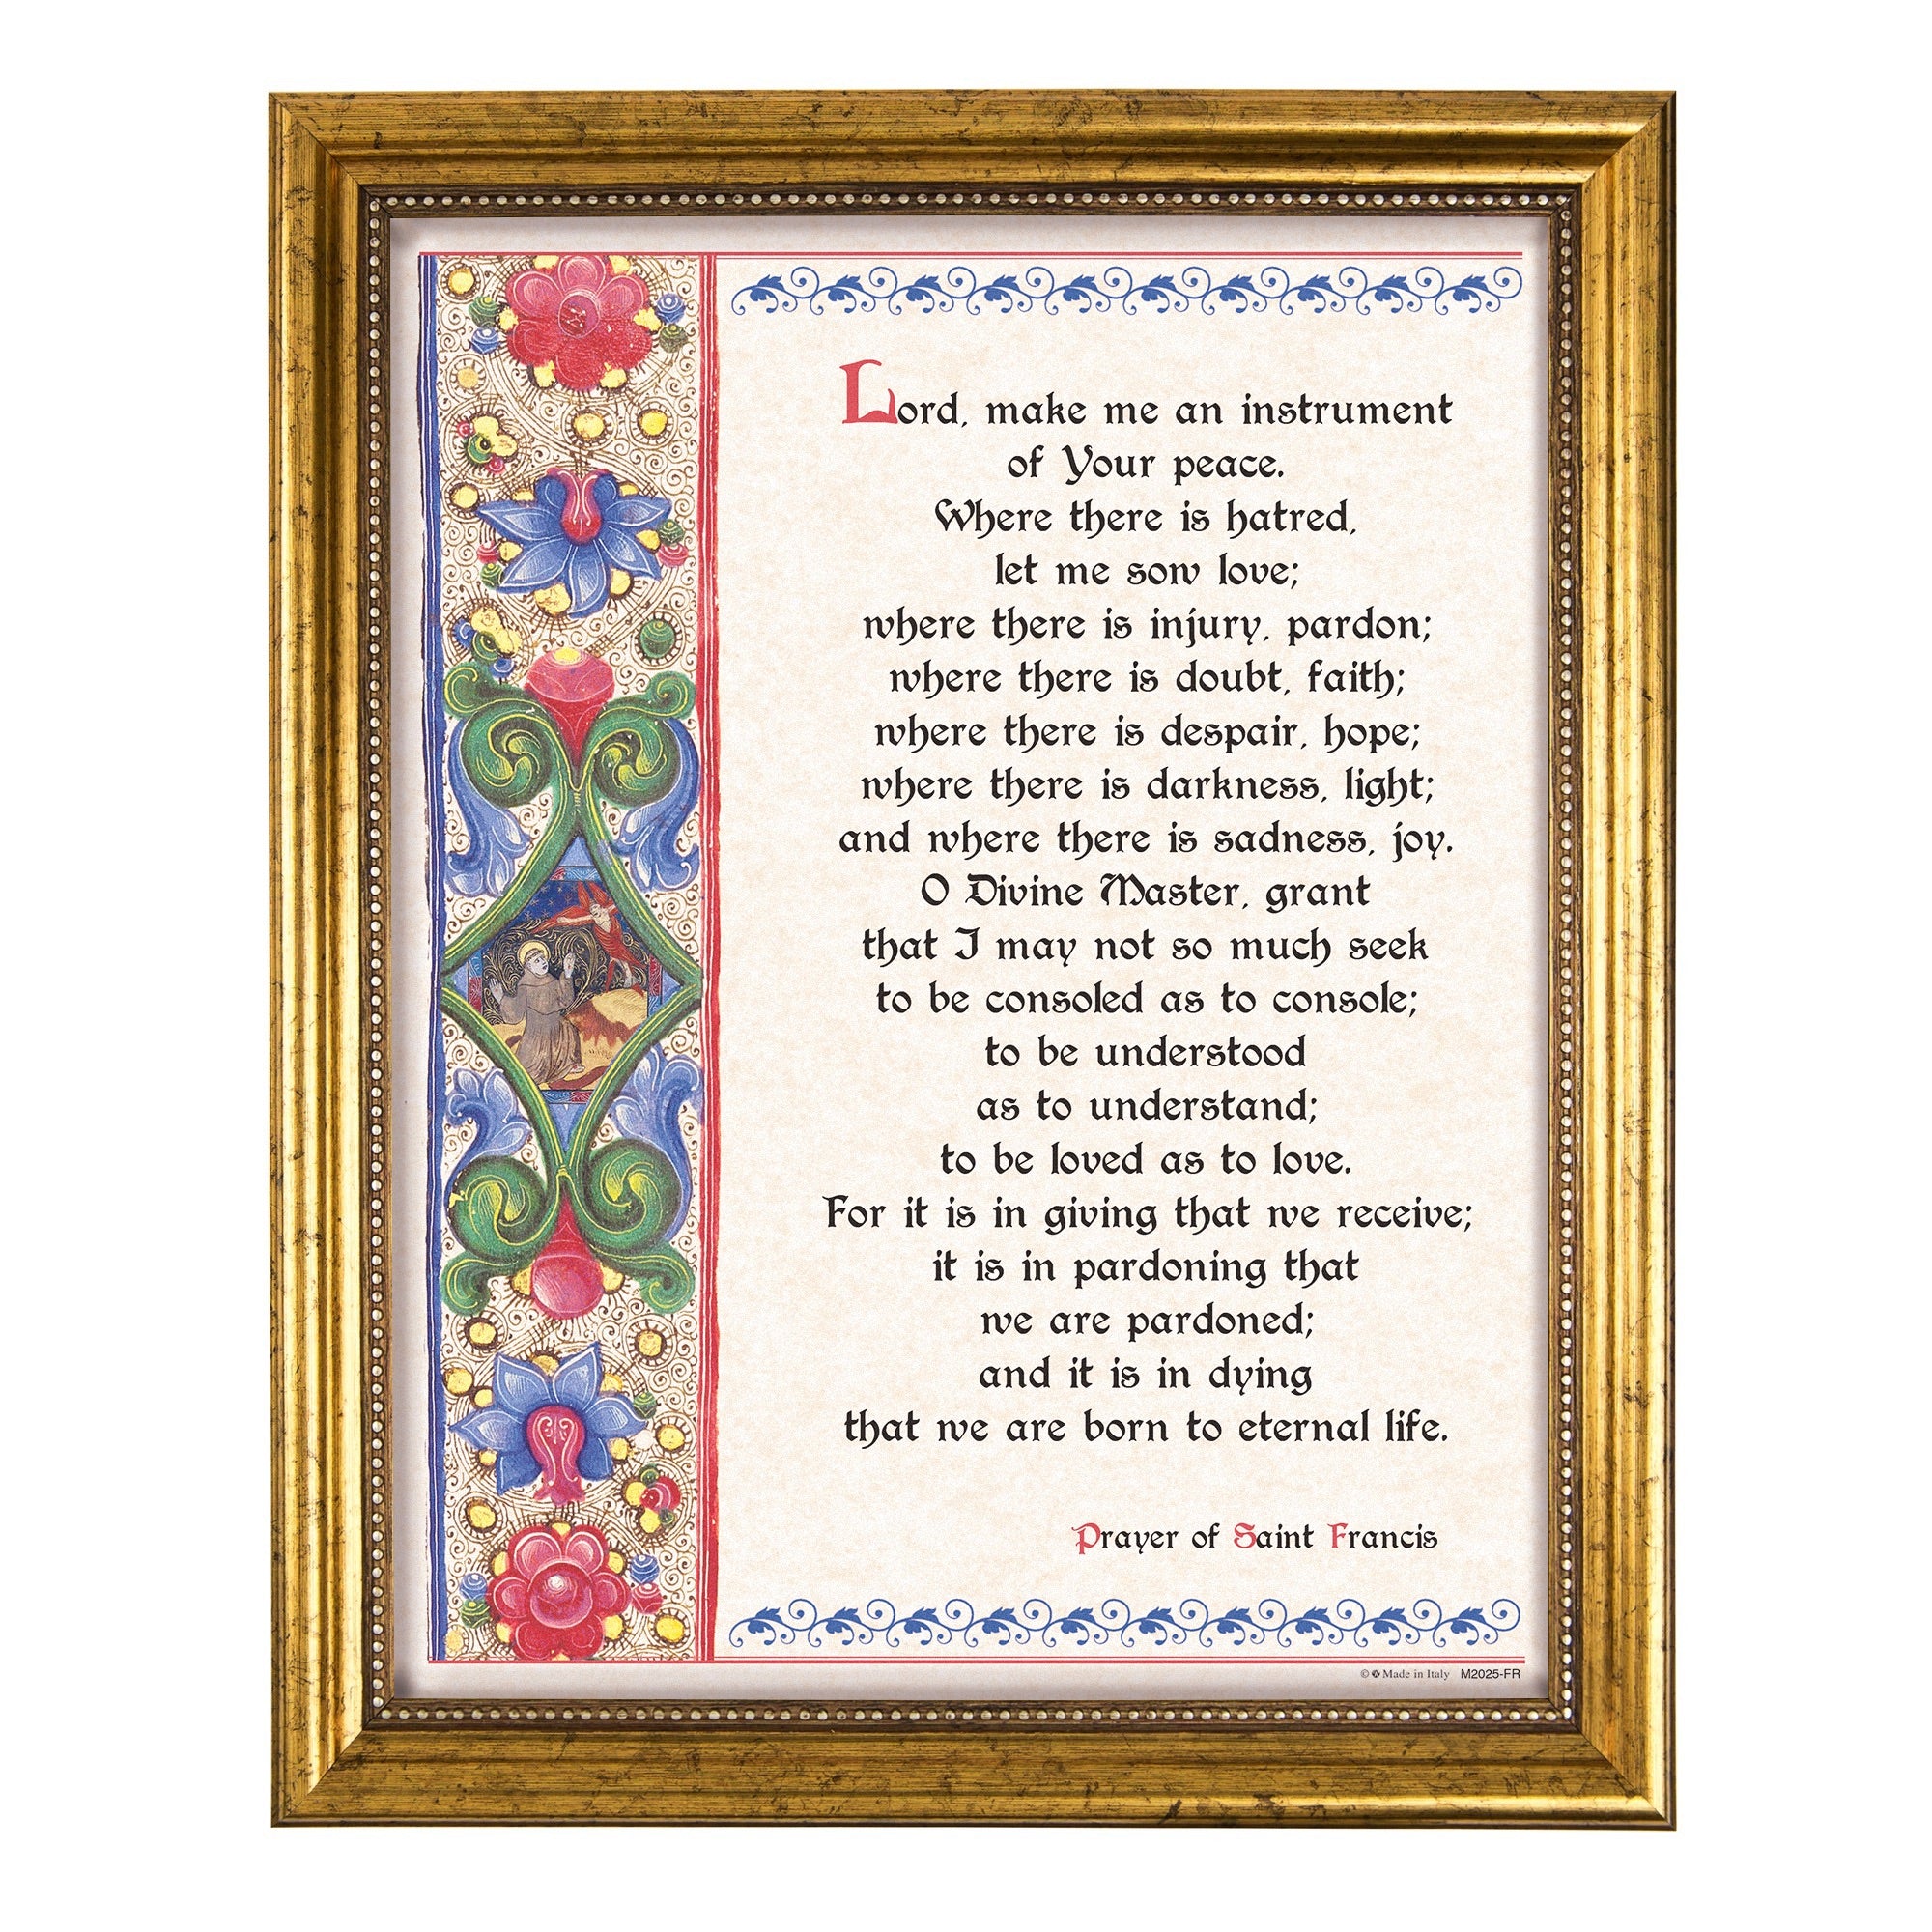 Lord, make me an instrument
of Your peace.
Where there is hatred,
let me sow love;
where there is injury, pardon;
where there is doubt, faith;
where there is despair, hope;
where there is darkness, light;
and where there is sadness, joy.
O Divine Master, grant
that I may not so much seek
to be consoled as to console;
to be understood
as to understand;
to be loved as to love.
For it is in giving that we receive;
it is in pardoning that
we are pardoned;
and it is in dying
that we are born to eternal life.
Prayer of Saint Francis
© Made in Italy M2025-FR